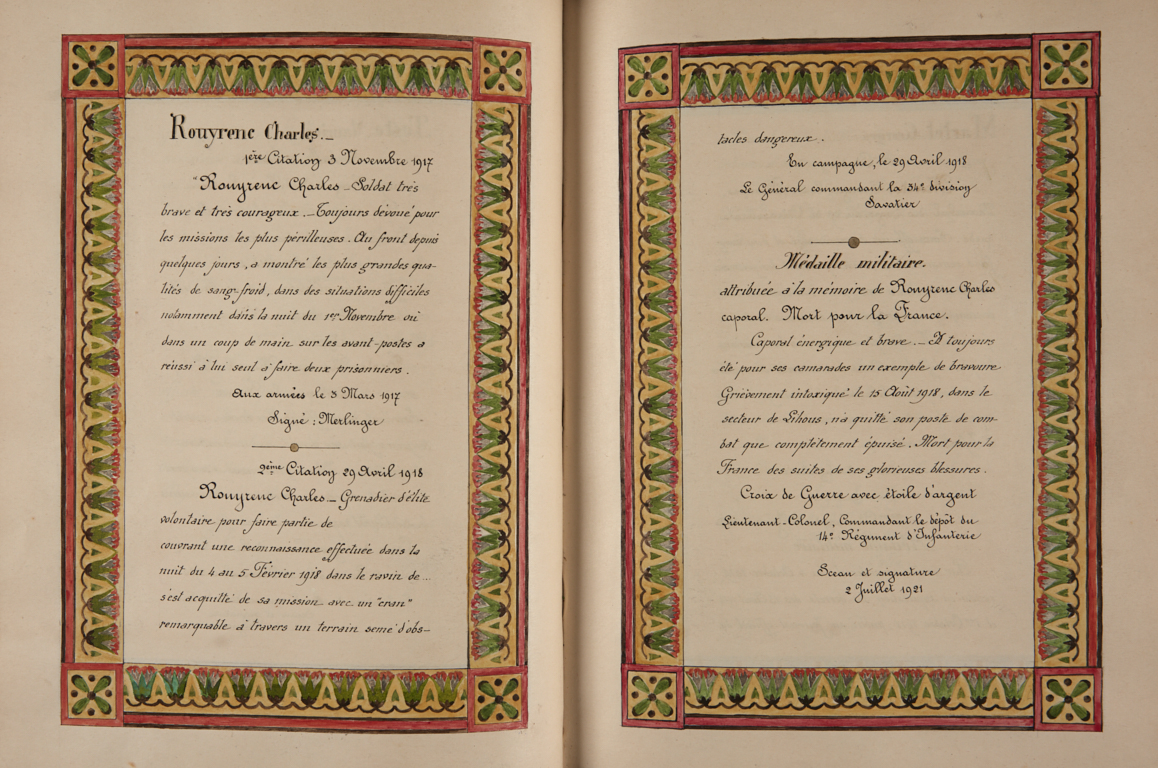 Rouyrenc Charles._
1ère Citation 3 Novembre 1917
"Rouyrenc Charles _ Soldat très
brave et très courageux._Toujours dévoué pour
les missions les plus périlleuses. Au front depuis
quelques jours, a montré les plus grandes qua-
lités de sang-froid, dans des situations difficiles
notamment dans la nuit du 1er Novembre où
dans un coup de main sur les avant-postes a
réussi à lui seul à faire deux prisonniers.
Aux armées le 3 Mars 1917
Signé : Merlinger
2ème Citation 29 Avril 1918
Rouyrenc Charles _ Grenadier d'élite
volontaire pour faire partie de
couvrant une reconnaissance effectuée dans la
nuit du 4 au 5 Février 1918 dans le ravin de...
s'est acquitté de sa mission avec un "cran"
remarquable à travers un terrain semé d'obs-
tacles dangereux.
En campagne, le 29 Avril 1918
Le Général commandant la 34e division
Savatier
Médaille militaire.
attribuée à la mémoire de Rouyrenc Charles
caporal. Mort pour la France.
Caporal énergique et brave._ A toujours
été pour ses camarades un exemple de bravoure
Grièvement intoxiqué le 15 Août 1918, dans le
secteur de Lihons, n'a quitté son poste de com-
bat que complètement épuisé. Mort pour la
France des suites de ses glorieuses blessures.
Croix de Guerre avec étoile d'argent
Lieutenant-Colonel, Commandant le dépôt du
14e Régiment d'Infanterie
Sceau et signature
2 Juillet 1921